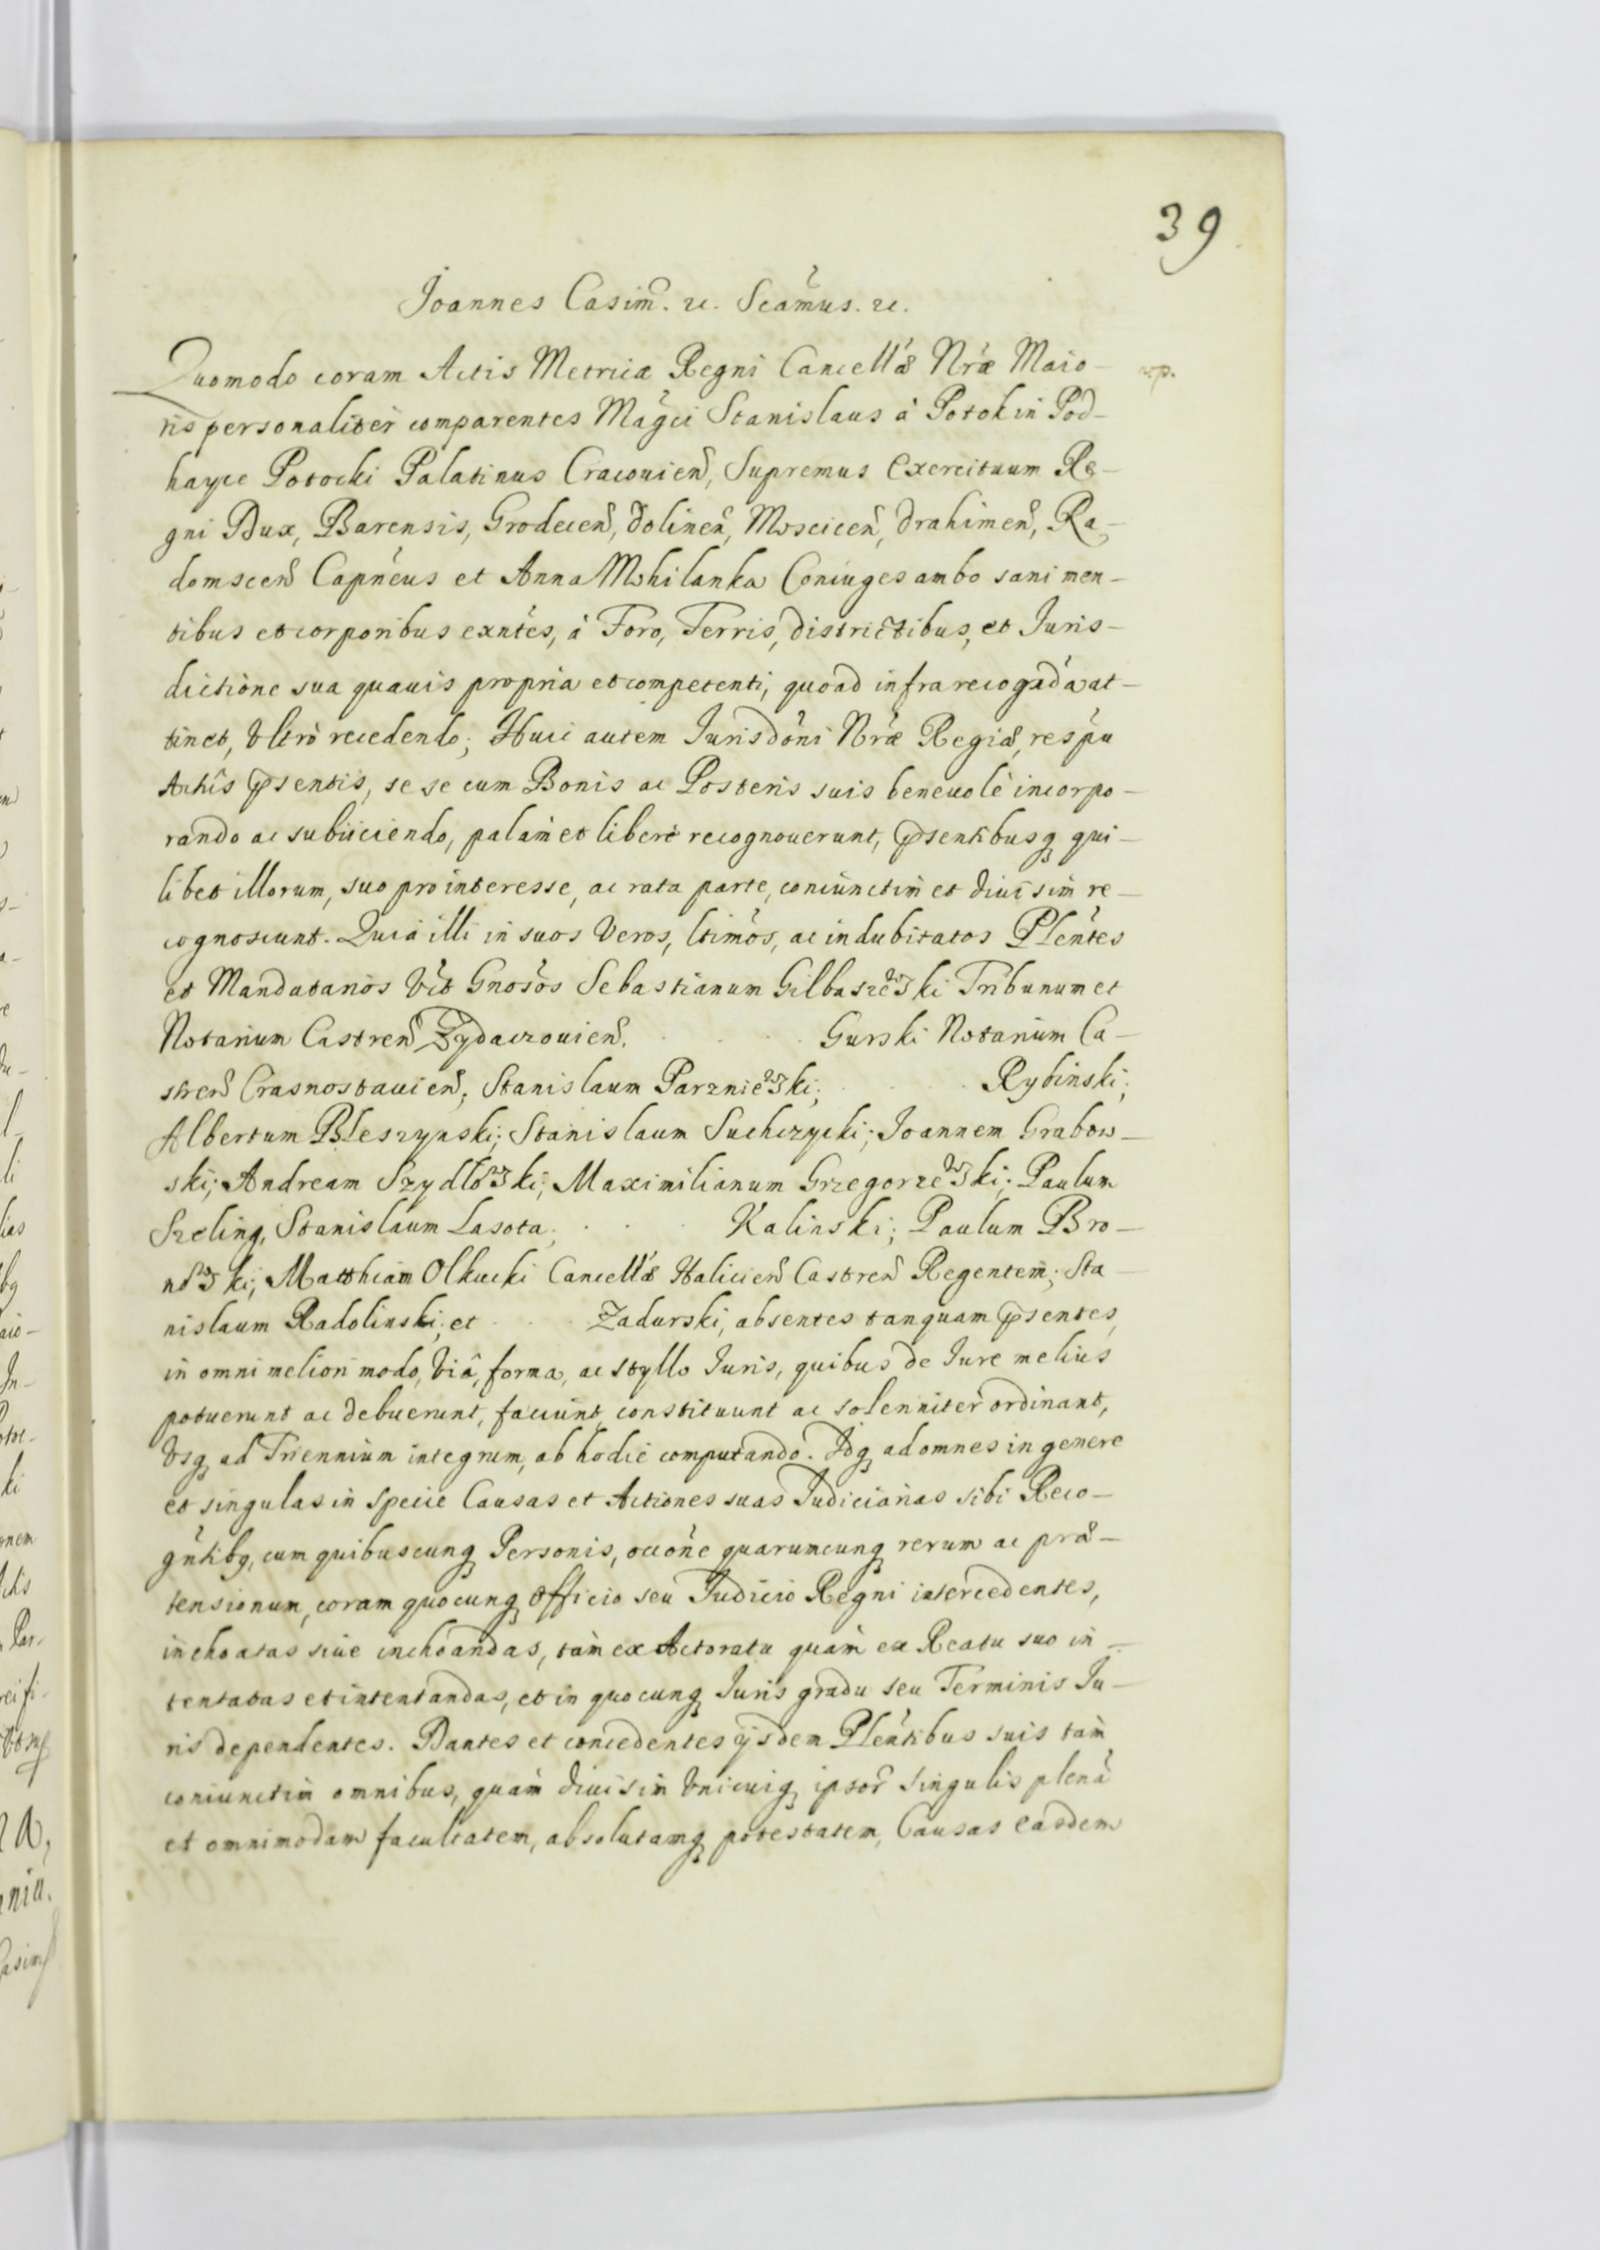 39
Joannes Casim. etc. Scamus. etc.
Quomodo coram Actis Metricæ Regni Cancellæ Nræ Maio-
ris personaliter comparentes Magci Stanislaus à Potok in Pod-
hayce Potocki Palatinus Cracouien, Supremus Exercituum Re-
gni Dux, Barensis, Grodecen, Dolinen, Moscicen, Drahimen, Ra-
domscen Capneus et Anna Mohilanka Coniuges ambo sani men-
tibus et corporibus exntes, à Foro, Terris, districtibus, et Juris-
dictione sua quauis propria et competenti, quoad infra recogāda at-
tinet, Vltrò recedendo; Huic autem Jurisdoni Nræ Regiæ, respu
Actûs psentis, se se cum Bonis ac Posteris suis beneuolè incorpo-
rando ac subijciendo, palam et liberè recognouerunt, psentibusq qui-
libet illorum, suo pro interesse, ac rata parte, coniunctim et diuisim re-
cognoscunt. Quia illi in suos Veros, ltimos, ac indubitatos Plentes
et Mandatarios Vit Gnosos Sebastianum Gilbaszewski Tribunum et
Notarium Castren Zydaczouien. Gurski Notarium Ca-
stren Crasnostauien; Stanislaum Parzniewski; Rybinski;
Albertum Bleszynski; Stanislaum Suchczycki; Joannem Grabow-
ski; Andream Szydlowski; Maximilianum Grzegorzewski; Paulum
Szeling, Stanislaum Lasota; Kalinski; Paulum Bro-
nowski; Matthiam Olkucki Cancellæ Halicien Castren Regentem; Sta-
nislaum Radolinski; et Zadurski, absentes tanquam psentes,
in omni meliori modo, Viâ, forma, ac styllo Juris, quibus de Jure melius
potuerunt ac debuerunt, faciunt, constituunt ac solenniter ordinant,
Vsq ad Triennium integrum, ab hodie computando. Idq ad omnes in genere
et singulas in specie Causas et Actiones suas Judiciarias sibi Reco-
gntibq, cum quibuscunq Personis, occone quarumcunq rerum ac præ-
tensionum, coram quocunq Officio seu Judicio Regni intercedentes,
inchoatas siue inchoandas, tam ex Actoratu quàm ex Reatu suo in-
tentatas et intentandas, et in quocunq Juris gradu seu Terminis Ju-
ris dependentes. Dantes et concedentes ijsdem Plentibus suis tam
coniunctim omnibus, quàm diuisim Vnicuiq ipsor singulis plenā
et omnimodam facultatem, absolutamq potestatem, Causas easdem